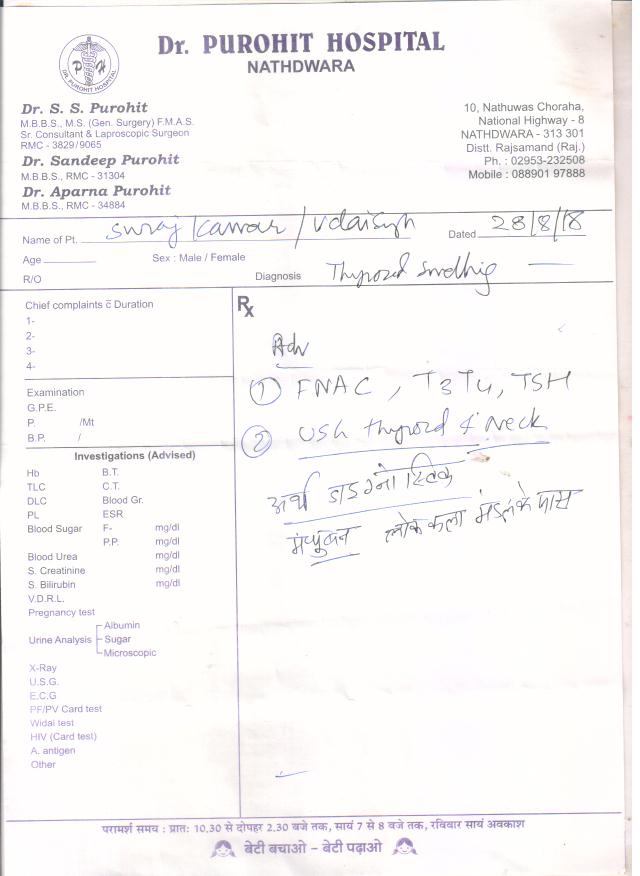 Dr. PUROHIT HOSPITAL
NATHDWARA
P H
DR. PUROHIT HOSPITAL
Dr. S. S. Purohit
M.B.B.S., M.S. (Gen. Surgery) F.M.A.S.
Sr. Consultant & Laproscopic Surgeon
RMC - 3829/9065
Dr. Sandeep Purohit
M.B.B.S., RMC - 31304
Dr. Aparna Purohit
M.B.B.S., RMC - 34884
10, Nathuwas Choraha,
National Highway - 8
NATHDWARA - 313 301
Distt. Rajsamand (Raj.)
Ph. : 02953-232508
Mobile : 088901 97888
Name of Pt. Suraj Kanwar / Udaisigh Dated 28/8/18
Age Sex : Male / Female
R/O Diagnosis Thyroid swelling
Chief complaints c̄ Duration
1-
2-
3-
4-
Examination
G.P.E.
P. /Mt
B.P. /
Investigations (Advised)
Hb B.T.
TLC C.T.
DLC Blood Gr.
PL ESR
Blood Sugar F- mg/dl
P.P. mg/dl
Blood Urea mg/dl
S. Creatinine mg/dl
S. Bilirubin mg/dl
V.D.R.L.
Pregnancy test
Urine Analysis Albumin
Sugar
Microscopic
X-Ray
U.S.G.
E.C.G
PF/PV Card test
Widal test
HIV (Card test)
A. antigen
Other
Rx
Adv
1 FNAC, T3 T4, TSH
2 USG thyroid & Neck
अर्थ डाइग्नोस्टिक
मधुबन लोक कला मंडल के पास
परामर्श समय : प्रातः 10.30 से दोपहर 2.30 बजे तक, सायं 7 से 8 बजे तक, रविवार सायं अवकाश
बेटी बचाओ – बेटी पढ़ाओ